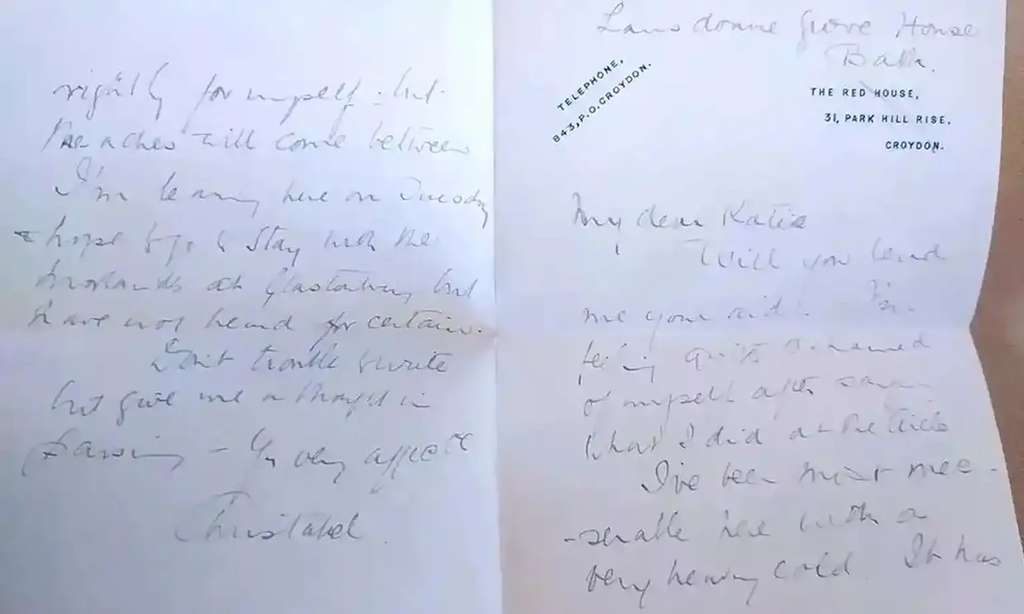 Lansdowne Grove House
Bath.
TELEPHONE,
843, P.O. CROYDON.
THE RED HOUSE,
31, PARK HILL RISE,
CROYDON.
My dear Katie
Will you lend
me your aid! I'm
feeling quite ashamed
of myself after saying
what I did at the
I've been most mee-
-serable here with a
very heavy cold. It has
rightly for myself: but
the aches will come between
I'm leaving here on Tuesday
& hope to go & stay with the
at Glastonbury but
have not heard for certain.
Don't trouble to write
but give me a thought in
passing - Yr very affecte
Christabel.